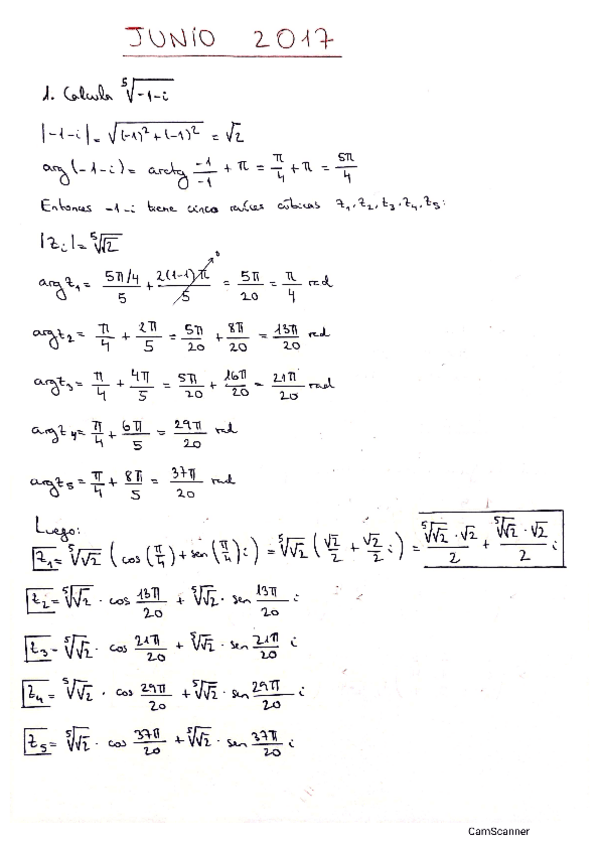 JUNIO 2017
1. Calcula ⁵√-1-i
|-1-i| = √(-1)²+(-1)² = √2
arg(-1-i) = arctg -1/-1 + π = π/4 + π = 5π/4
Entonces -1-i tiene cinco raíces cúbicas z₁, z₂, z₃, z₄, z₅:
|zᵢ| = ⁵√√2
arg z₁ = 5π/4/5 + 2(1-1)π/5 → 0 = 5π/20 = π/4 rad
arg z₂ = π/4 + 2π/5 = 5π/20 + 8π/20 = 13π/20 rad
arg z₃ = π/4 + 4π/5 = 5π/20 + 16π/20 = 21π/20 rad
arg z₄ = π/4 + 6π/5 = 29π/20 rad
arg z₅ = π/4 + 8π/5 = 37π/20 rad
Luego:
z₁ = ⁵√√2 (cos(π/4) + sen(π/4)i) = ⁵√√2 (√2/2 + √2/2 i) = ⁵√√2·√2/2 + ⁵√√2·√2/2 i
z₂ = ⁵√√2 · cos 13π/20 + ⁵√√2 · sen 13π/20 i
z₃ = ⁵√√2 · cos 21π/20 + ⁵√√2 · sen 21π/20 i
z₄ = ⁵√√2 · cos 29π/20 + ⁵√√2 · sen 29π/20 i
z₅ = ⁵√√2 · cos 37π/20 + ⁵√√2 · sen 37π/20 i
CamScanner